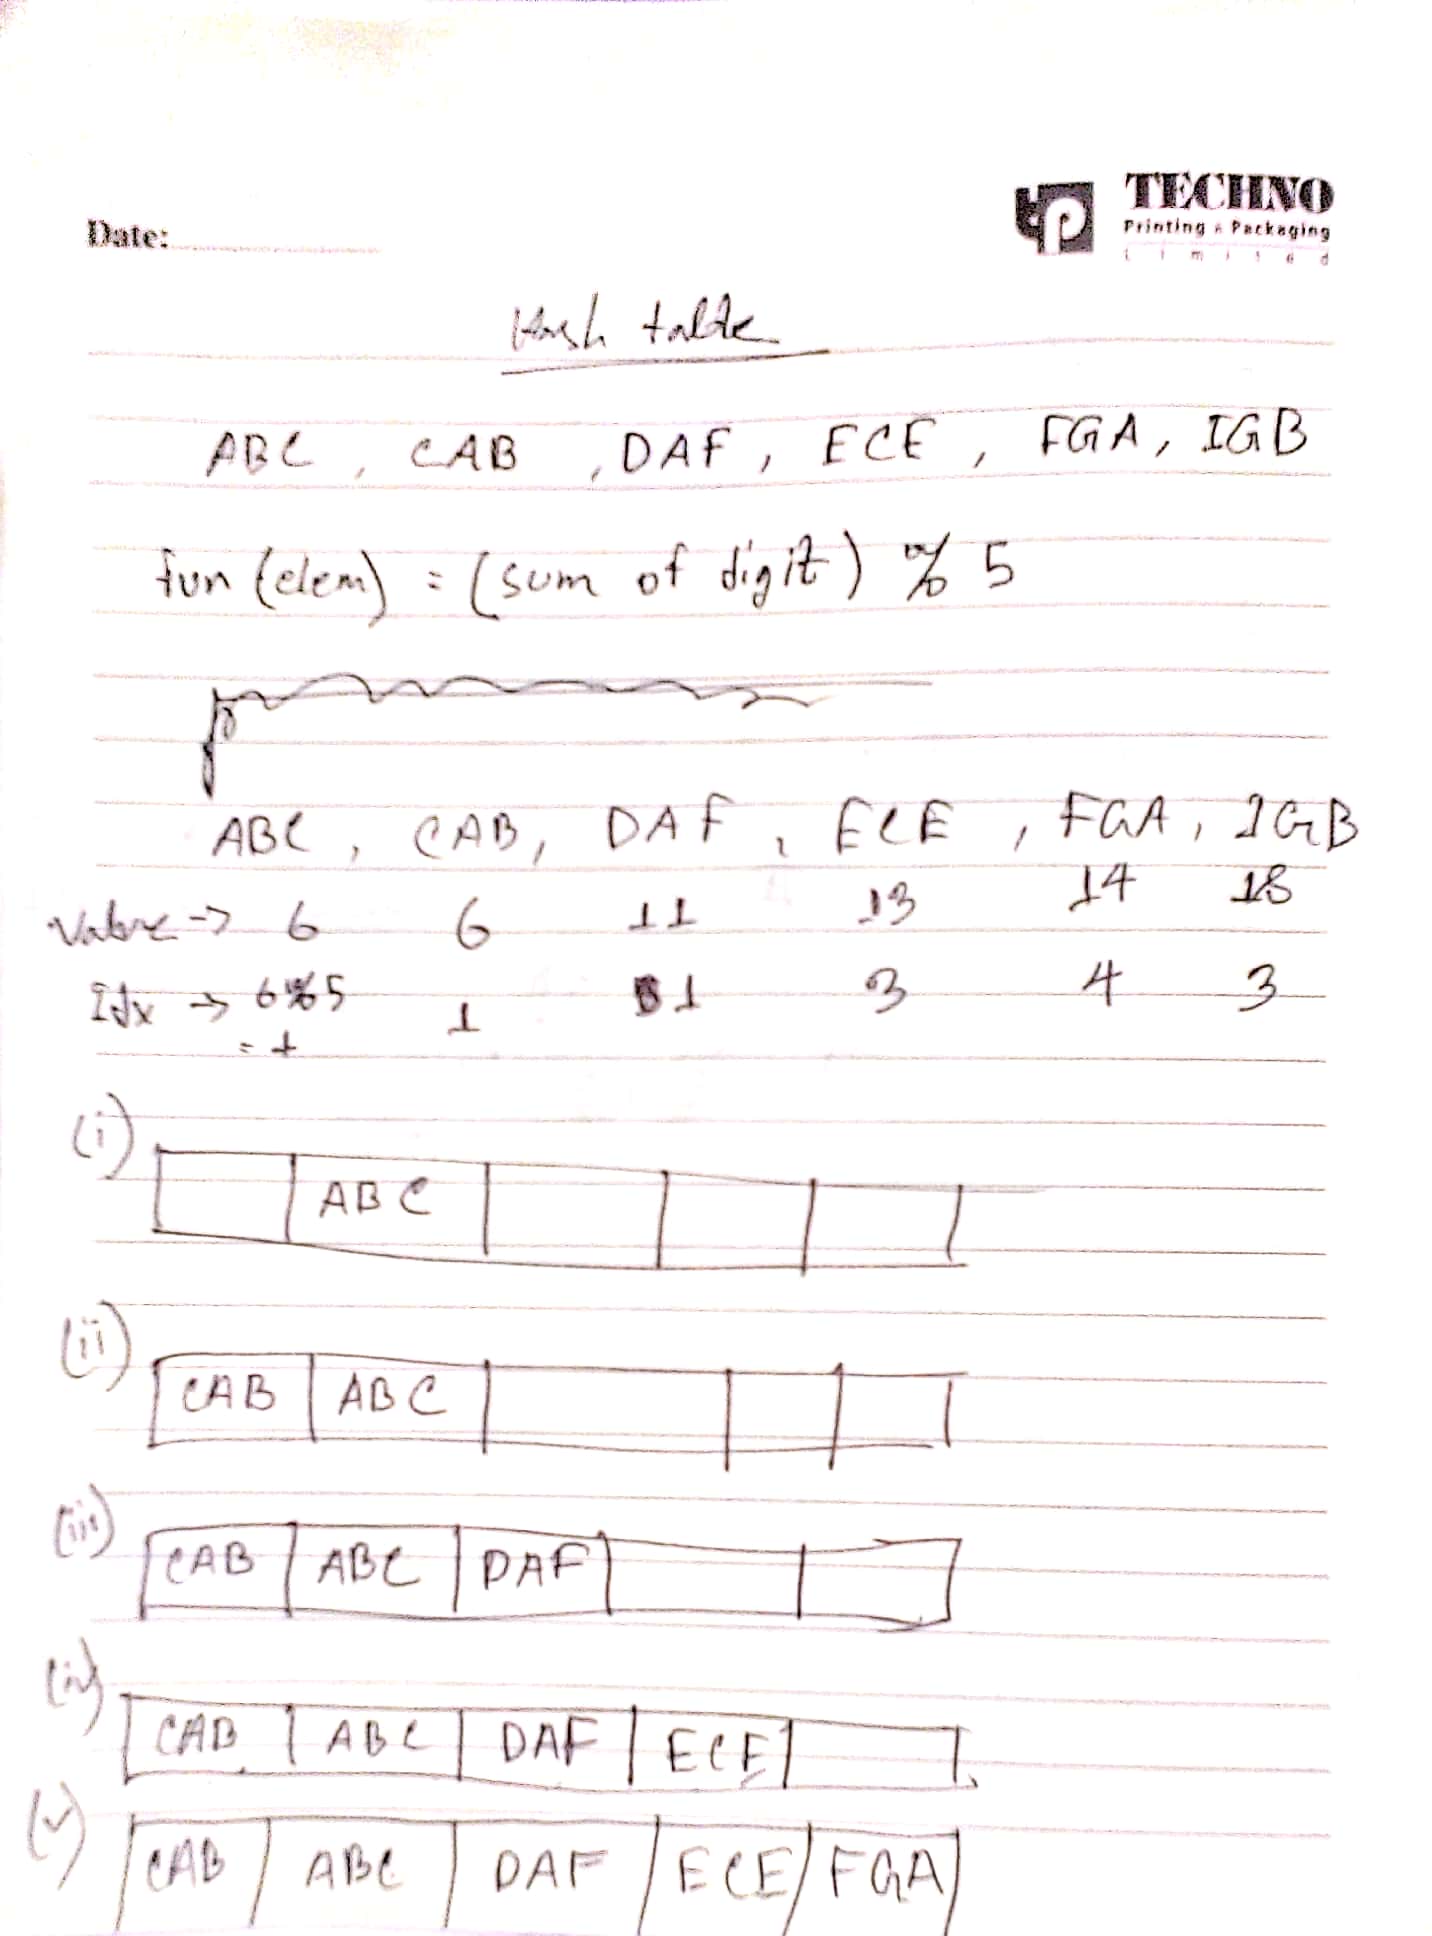 TECHNO
Printing & Packaging
Limited
Date:
Hash table
ABC, CAB, DAF, ECE, FGA, IGB
fun (elem) = (sum of digit) % 5
ABC, CAB, DAF, ECE, FGA, IGB
Value -> 6 6 11 13 14 18
Idx -> 6%5 1 1 3 4 3
= 1
(i)
ABC
(ii)
CAB ABC
(iii)
CAB ABC DAF
(iv)
CAB ABC DAF ECE
(v)
CAB ABC DAF ECE FGA